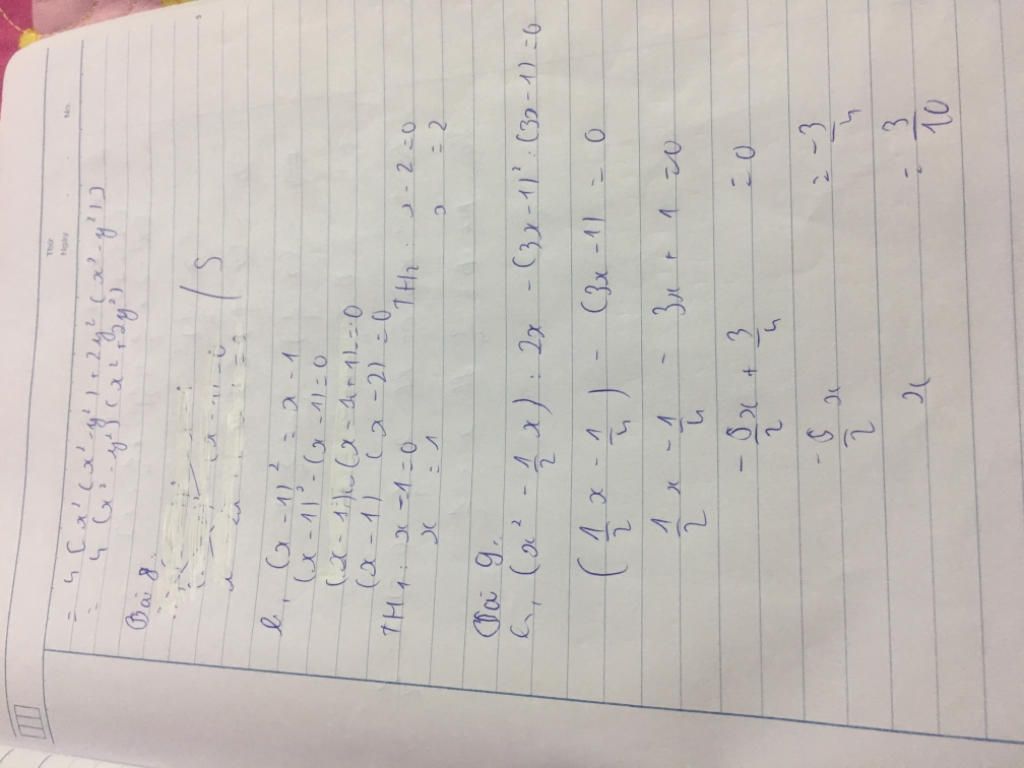 Thứ
Ngày
No.
= 4 (x²(x²-y²) + 2y²(x²-y²))
= 4 (x²-y²)(x²+2y²)
Bài 8.
b, (x-1)² = x-1
(x-1)² - (x-1) = 0
(x-1)(x-1-1) = 0
(x-1) (x-2) = 0
TH1: x-1=0 TH2: x-2=0
x = 1 x = 2
Bài 9.
c, (x² - 1/2 x) : 2x - (3x-1)² : (3x-1) = 0
(1/2 x - 1/4) - (3x-1) = 0
1/2 x - 1/4 - 3x + 1 = 0
- 5/2 x + 3/4 = 0
- 5/2 x = - 3/4
x = 3/10